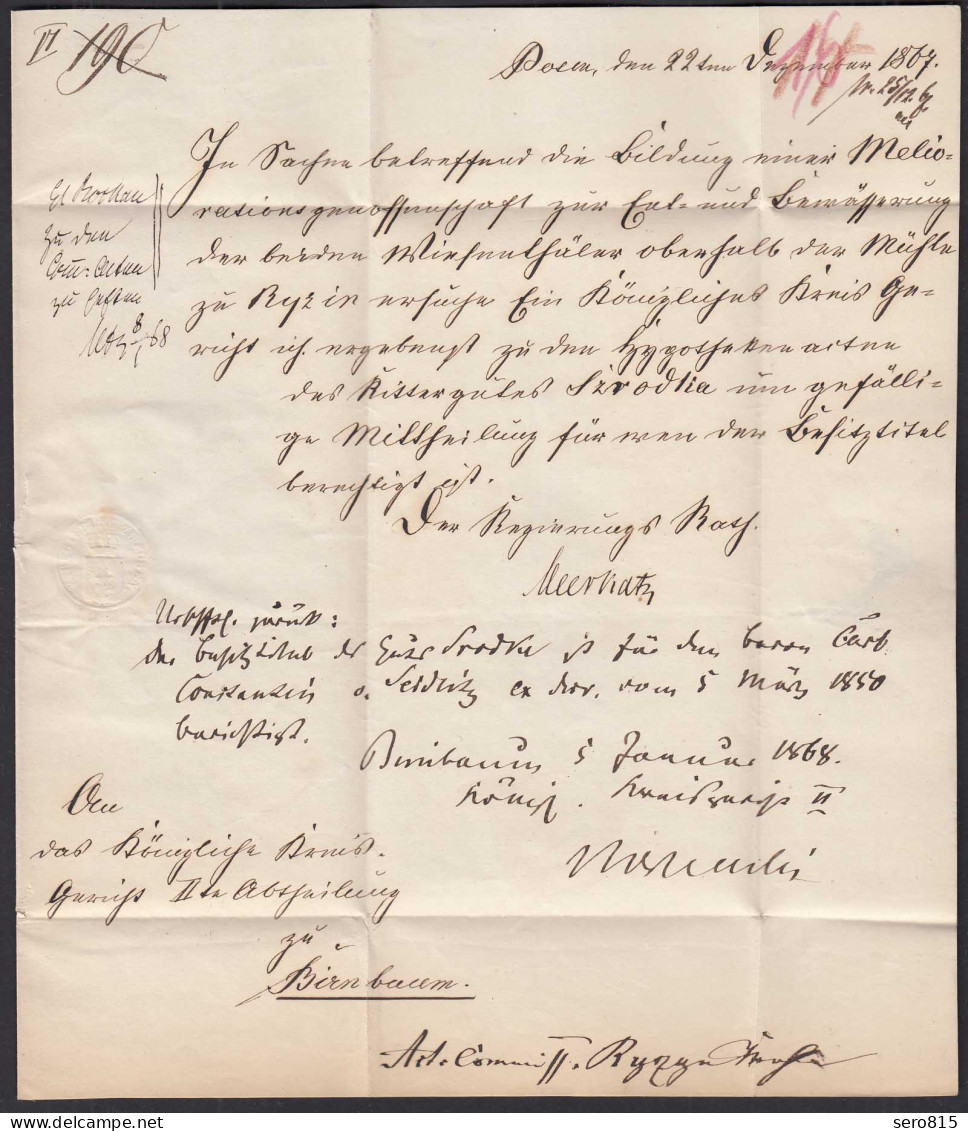 II 190
Posen, den 22ten Dezember 1867.
In Sachen betreffend die Bildung einer Melio-
rationsgenossenschaft zur Ent- und Bewässerung
der beiden Wiesenthäler oberhalb der Mühle
zu Ryzin ersuche Ein Königliches Kreis Ge-
richt ich ergebenst zu den Hypothekenacten
des Rittergutes Szrodka um gefälli-
ge Mittheilung für wen der Besitztitel
berechtigt ist.
Der Regierungs Rath.
Meerkatz
zu den
Com: Acten
zu heften
8/1 68
Urschftl. zurück:
der Besitztitel des Guts Srodka ist für den Baron Carl
Constantin v. Seidlitz ex decr. vom 5 März 1850
berichtigt.
Birnbaum 5 Januar 1868.
Königl. Kreisgericht II
An
das Königliche Kreis-
Gericht IIte Abtheilung
zu
Birnbaum.
Act. Commiss.
sero815